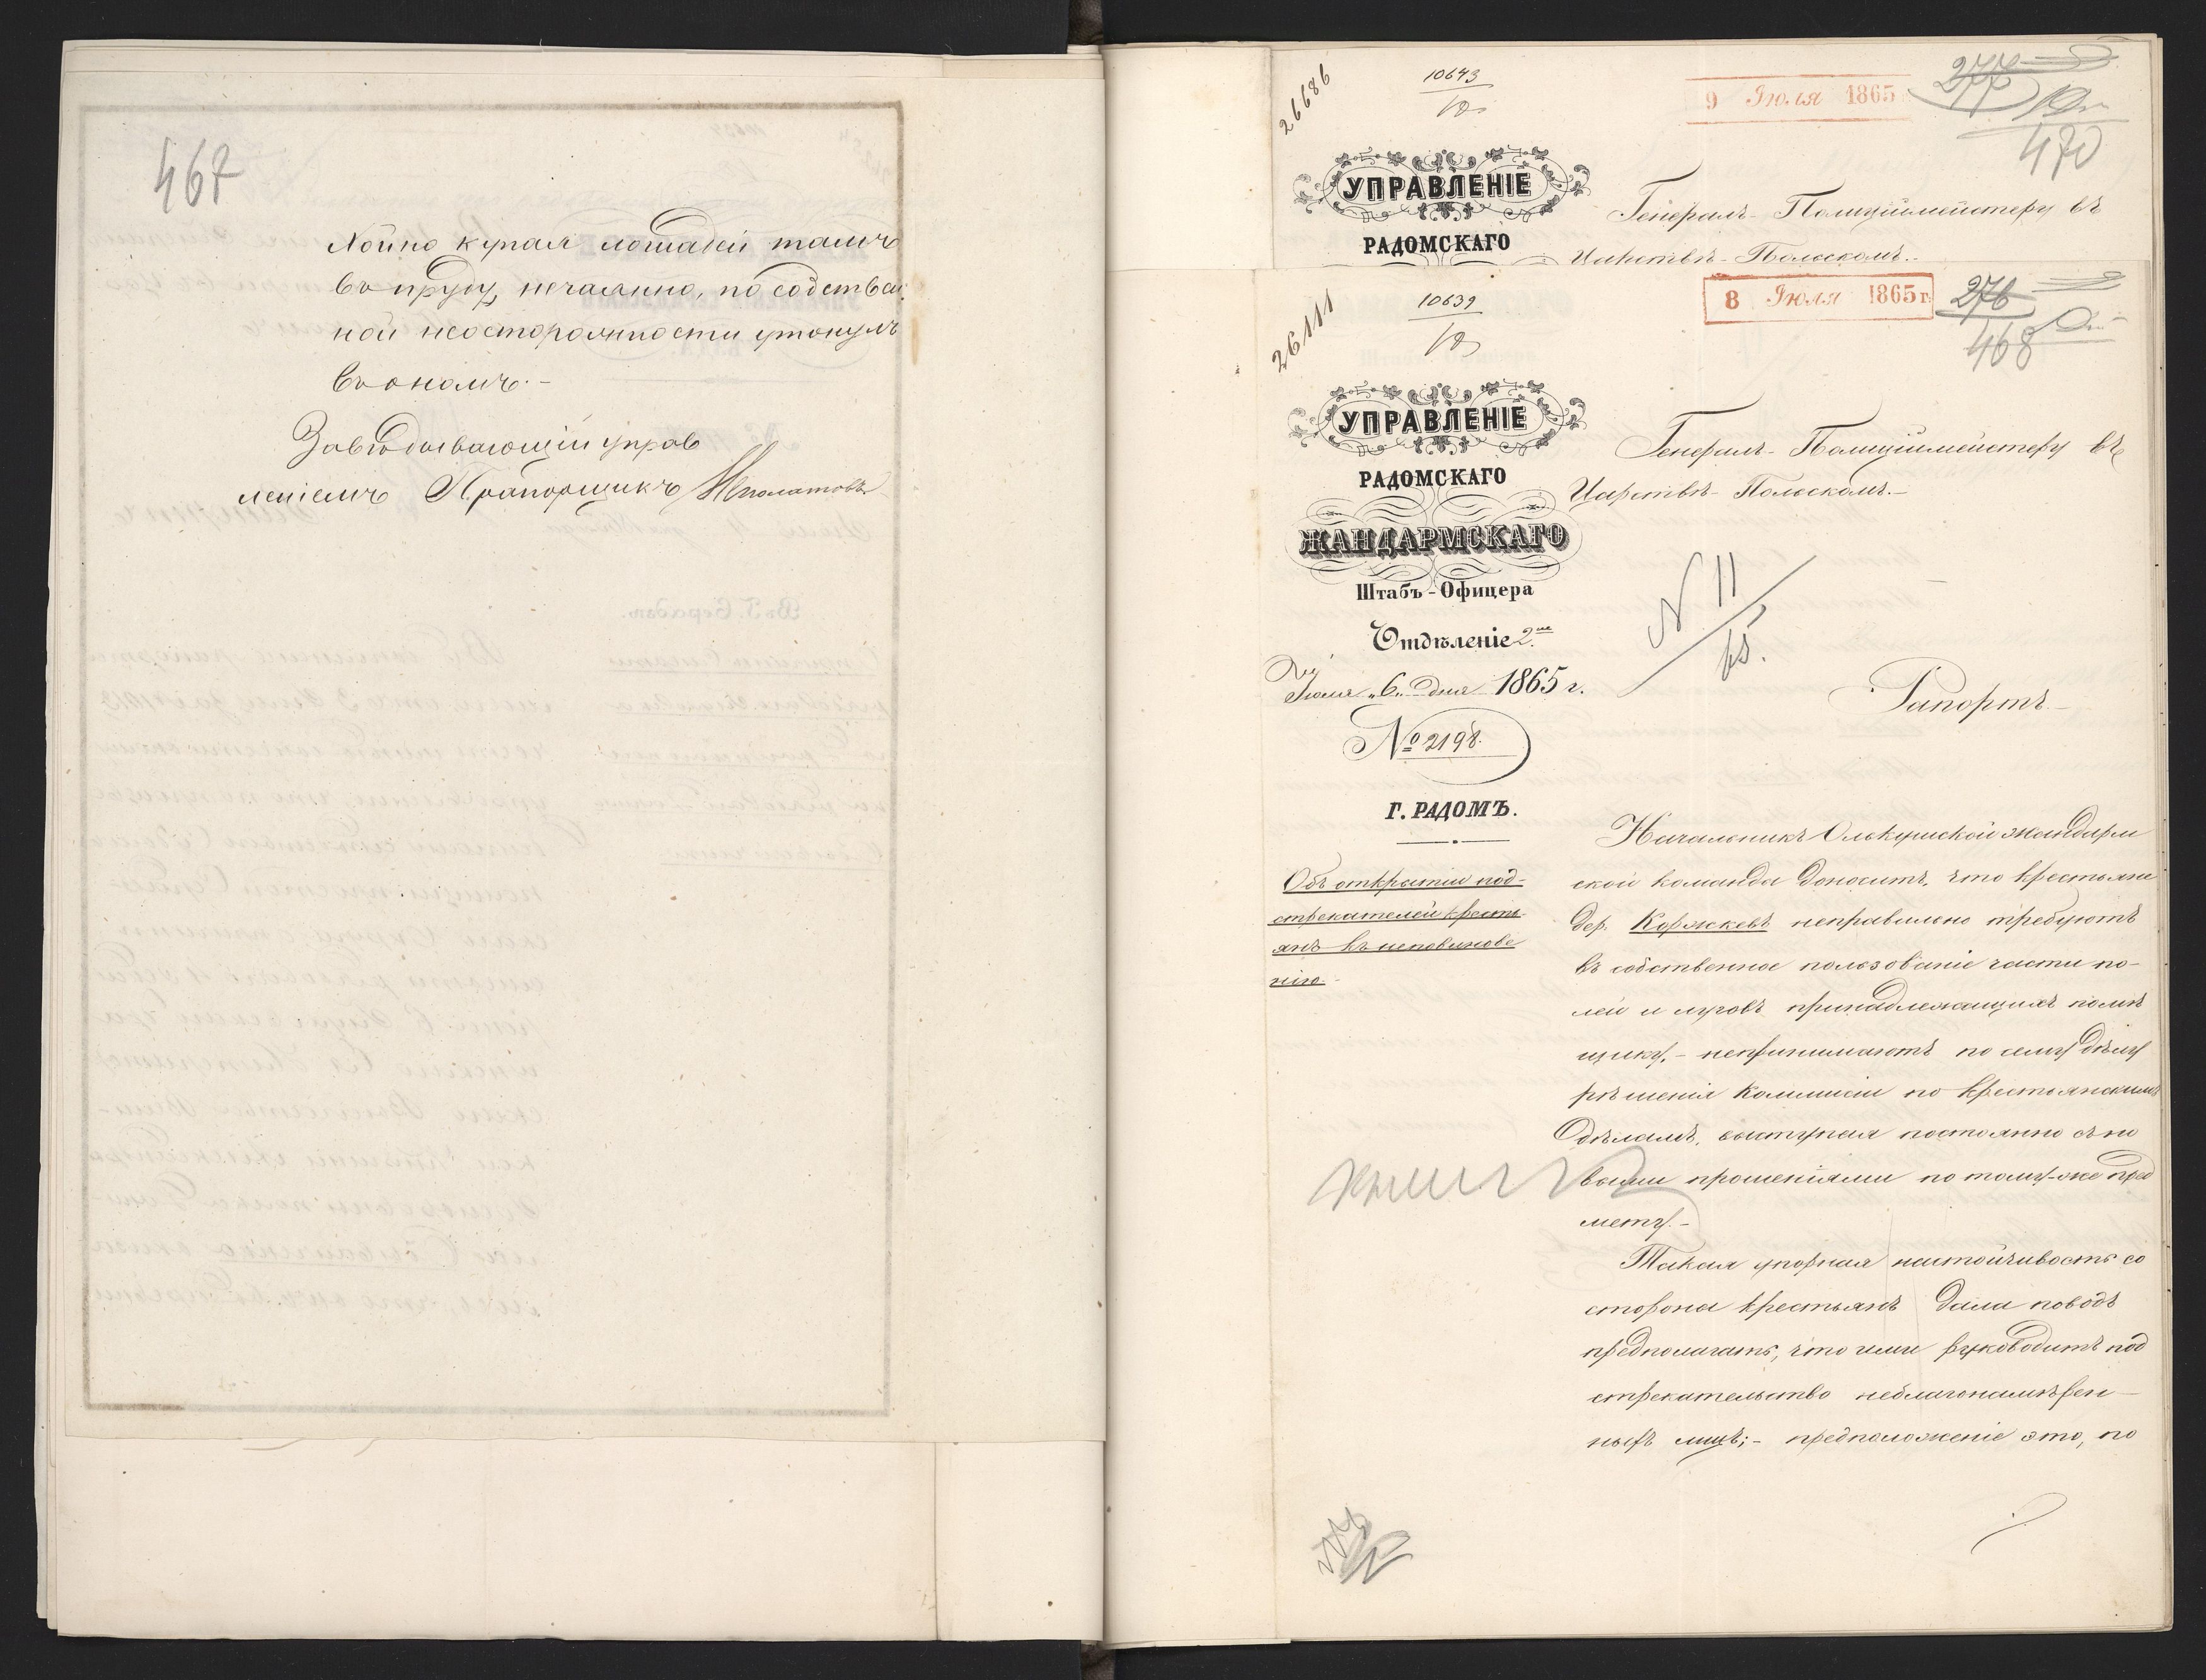 467
Нойно купал лошадей тамъ
въ пруду, нечаянно, по собствен
ной неосторожности утонулъ
въ ономъ.-
Завѣдывающій управ
леніемъ Прапорщикъ
26686
10643
9 Іюля 1865
277
470
УПРАВЛЕНІЕ
РАДОМСКАГО
Генералъ-Полиціймейстеру въ
Царствѣ-Польскомъ.-
26111
10639
8 Іюля 1865 г.
276
468
УПРАВЛЕНІЕ
РАДОМСКАГО
ЖАНДАРМСКАГО
Штабъ-Офицера
Отдѣленіе 2.ое
Іюля „6„ дня 1865 г.
№ 2198.
Г. РАДОМЪ.
Генералъ-Полиціймейстеру въ
Царствѣ-Польскомъ.-
N 11
65.
Рапортъ.
Объ открытіи под-
стрекателей кресть
янъ къ неповинове
нію.
Начальникъ Олькушской жандарм
ской команды доноситъ, что крестьяне
дер. Коржкевъ неправильно требуютъ
въ собственное пользованіе части по-
лей и луговъ принадлежащихъ помѣ
щику,- непринимаютъ по сему дѣлу
рѣшенія Коммисіи по крестьянскимъ
дѣламъ, выступая постоянно съ но
выми прошеніями по тому-же пред
мету.-
Такая упорная настойчивость со
стороны крестьянъ дала поводъ
предполагать, что ими руководитъ под
стрекательство неблагонамѣрен-
ныхъ лицъ;- предположеніе это, по